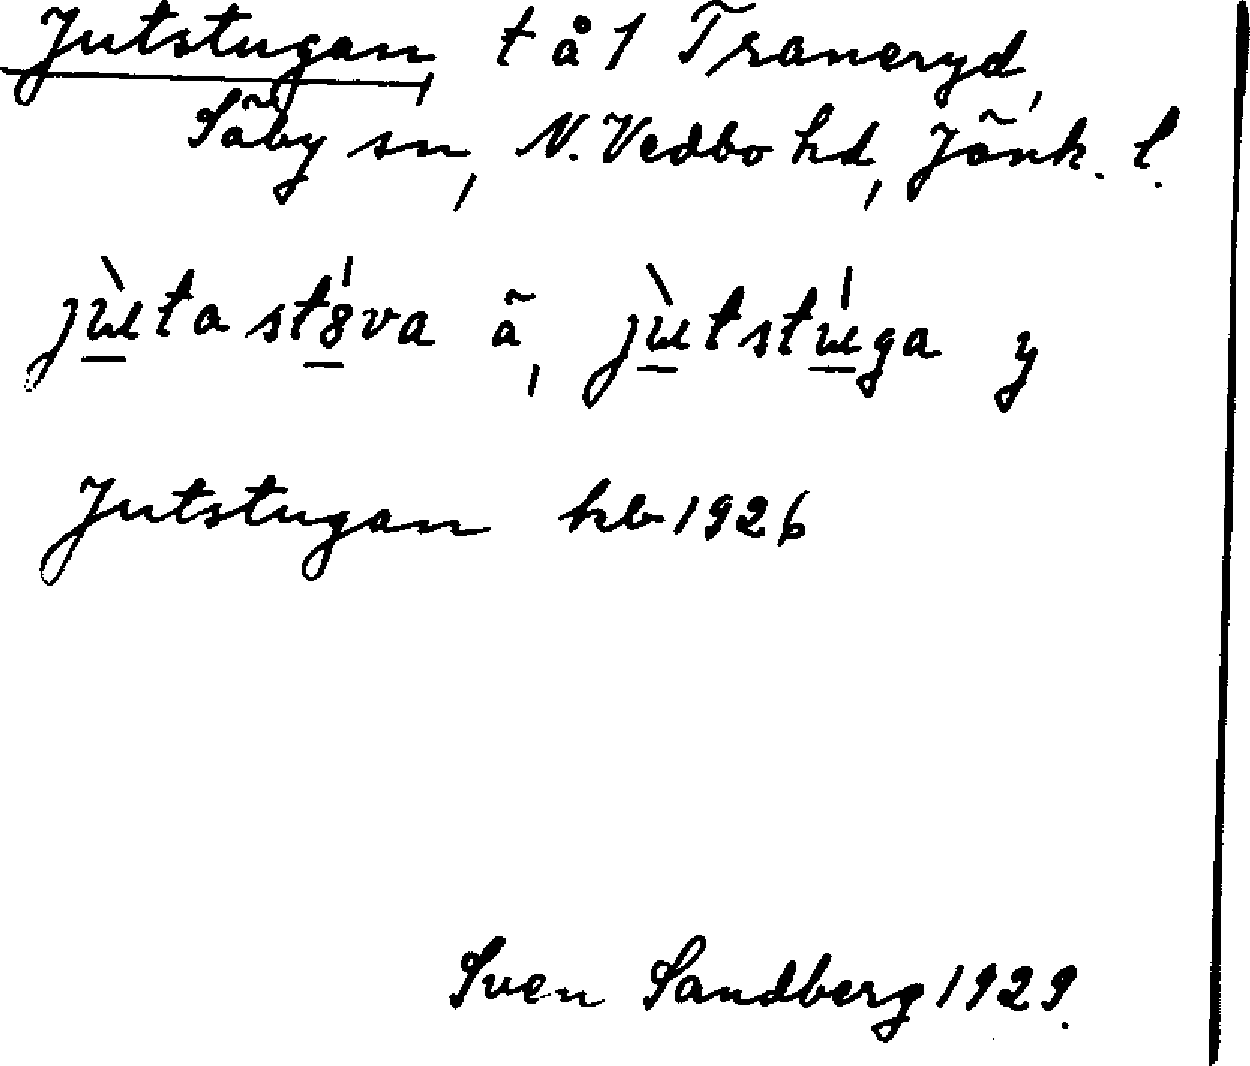 Jutstugan, t å 1 Traneryd,
Säby sn, N. Vedbo hd, Jönk. l.
jùtastȣ́va ä, jùtstúga y
Jutstugan hb 1926
Sven Sandberg 1929.